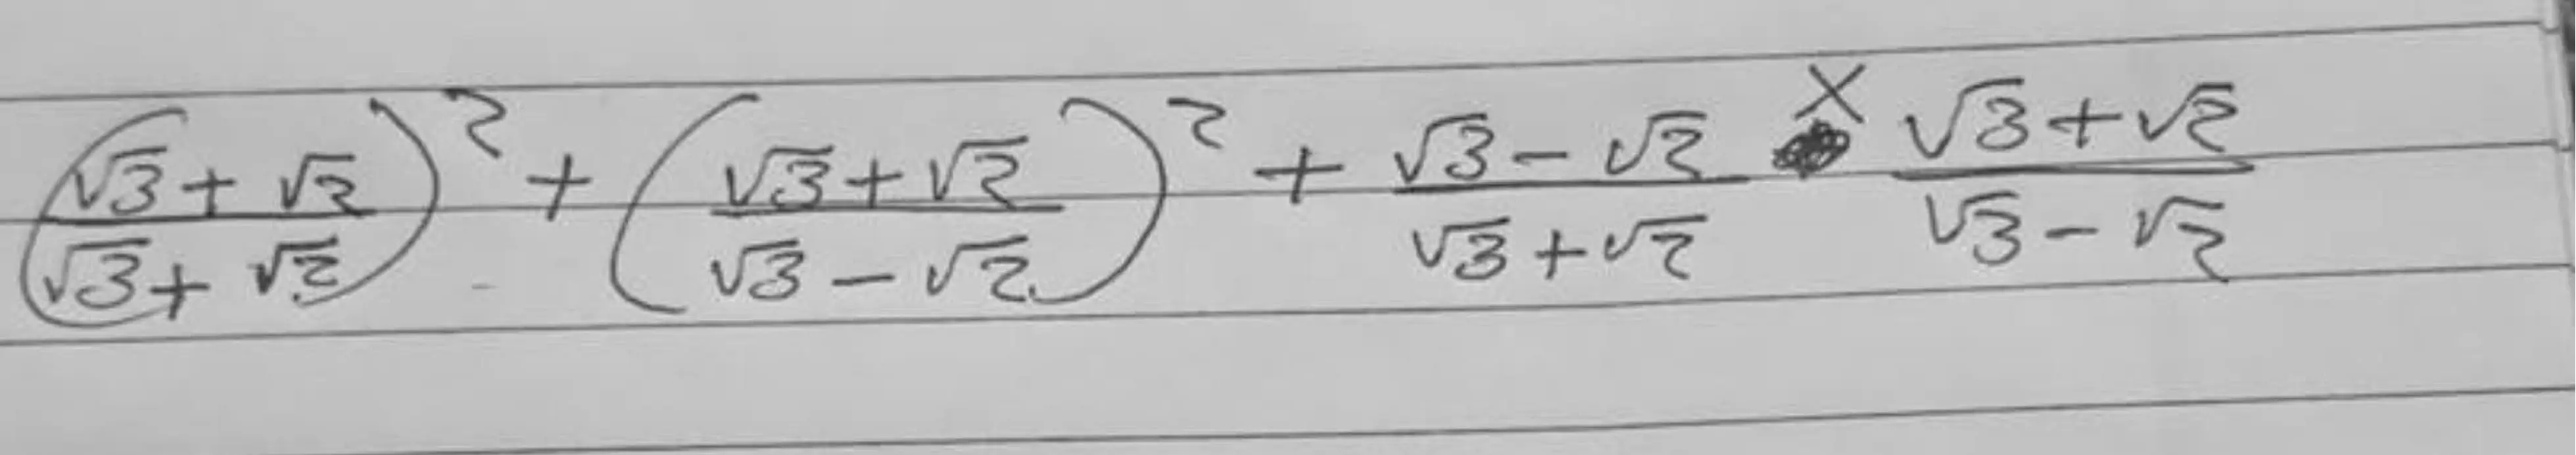 ((√3 + √2)/(√3 + √2))² + ((√3 + √2)/(√3 − √2))² + (√3 − √2)/(√3 + √2) × (√3 + √2)/(√3 − √2)